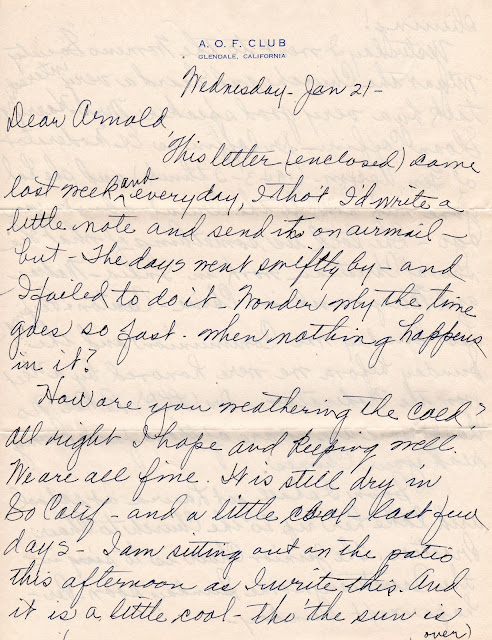 A. O. F. CLUB
GLENDALE, CALIFORNIA
Wednesday - Jan 21 -
Dear Arnold,
This letter (enclosed) came
last week and everyday, I tho't I'd write a
little note and send it on airmail -
but - The days went swiftly by - and
I failed to do it - Wonder why the time
goes so fast. when nothing happens
in it?
How are you weathering the cold?
All right I hope and keeping well.
We are all fine. It is still dry in
So Calif - and a little cool - last few
days - I am sitting out on the patio
this afternoon as I write this. And
it is a little cool - tho' the sun is
(over)